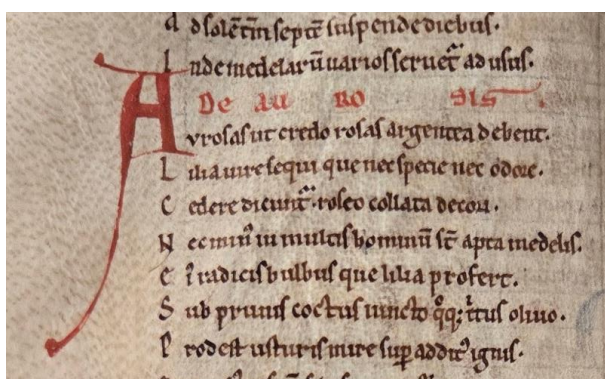 Ad solē tm̄ septē suspende diebus.
Inde medelarū uarios seruet᷑ ad usus.
De au RO sis.
Aurosas ut credo rosas argentea debent.
Lilia iure sequi que nec specie nec odore.
Cedere dicunt᷑. roseo collata decori.
Nec min᷒ in multis hominū st̄ apta medelis.
radicis bulbus que lilia profert.
Sub prunis coctus iuncto qͦq; tͥtus oliuo.
Prodest usturis mire suꝑ addit᷒ ignis.